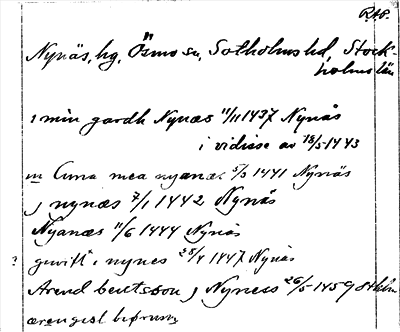 RAP.
Nynäs, hg, Ösmo sn, Sotholms hd, Stock-
holms län
i min gardh Nynæs 11/11 1437 Nynäs
i vidisse av 18/5 1443
in Curia mea nyanæs 5/3 1441 Nynäs
j nynæs 7/1 1442 Nynäs
Nyanæs 11/6 1444 Nynäs
? gwitt i nynes 28/4 1447 Nynäs
Arend bentsson j Nyness 26/5 1459 Sthlm